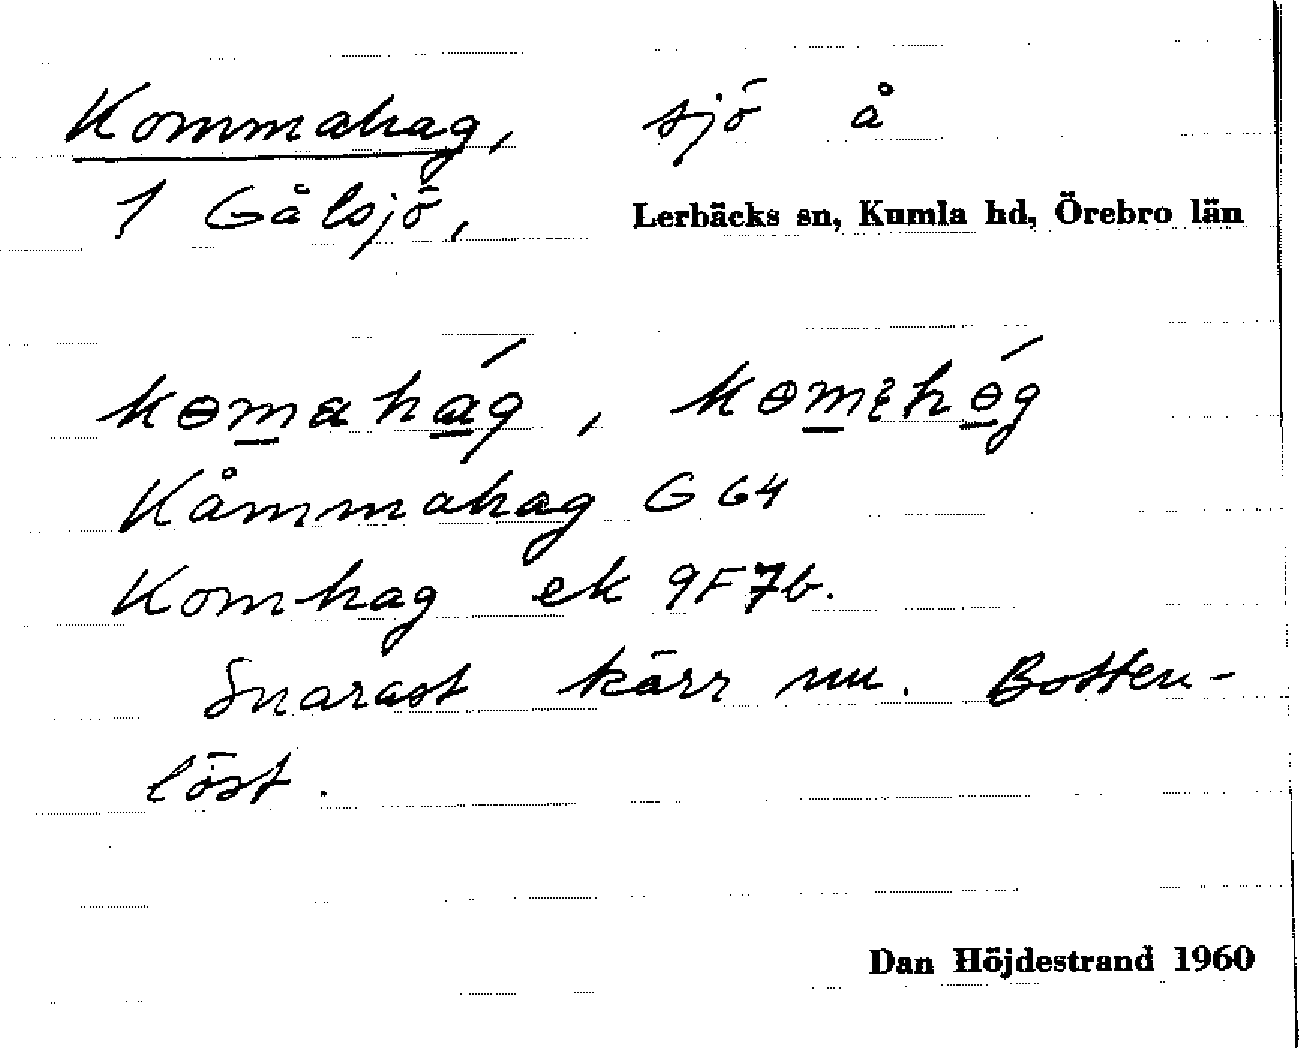 Kommahag, sjö å
1 Gålsjö, Lerbäcks sn, Kumla hd, Örebro län
kɵmahág, kɵmɛhɵ́g
Kåmmahag G 64
Komhag ek 9F7b.
Snarast kärr nu. Botten-
löst.
Dan Höjdestrand 1960